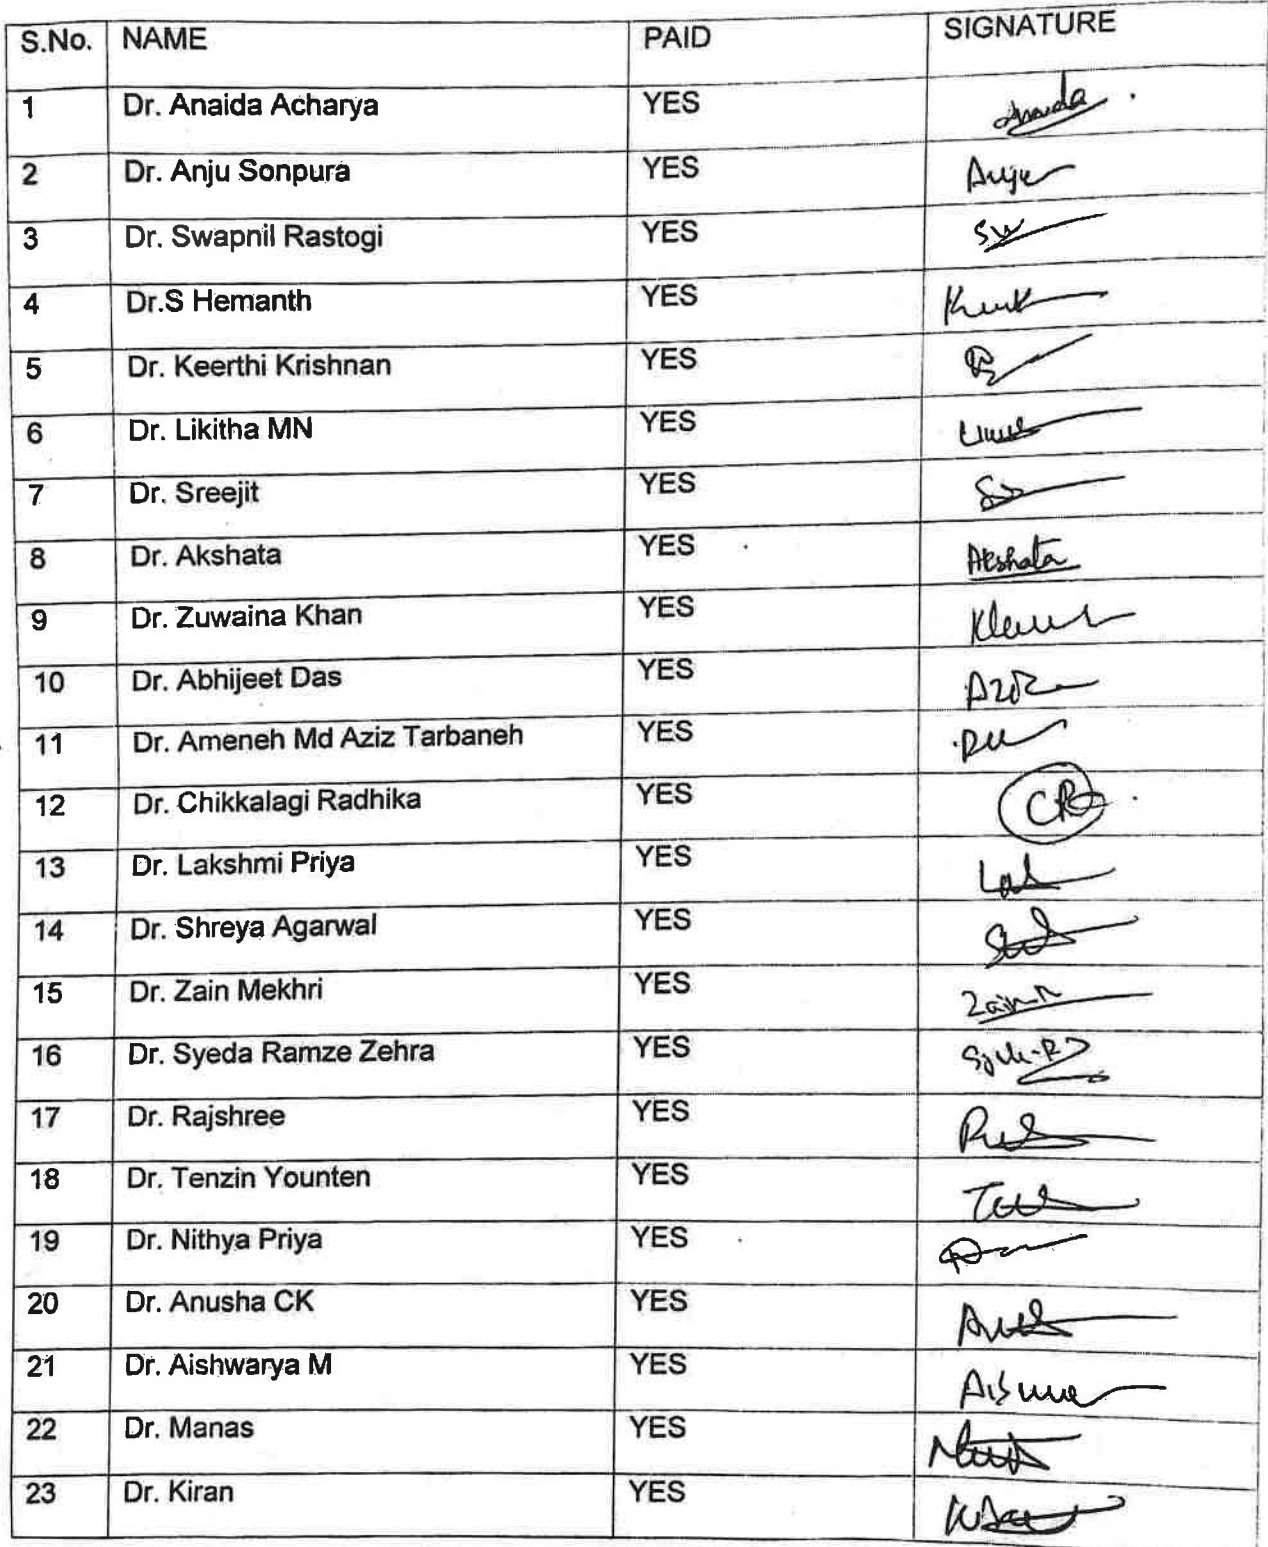 S.No. NAME PAID SIGNATURE
1 Dr. Anaida Acharya YES Anaida
2 Dr. Anju Sonpura YES Anju
3 Dr. Swapnil Rastogi YES SW
4 Dr.S Hemanth YES
5 Dr. Keerthi Krishnan YES
6 Dr. Likitha MN YES
7 Dr. Sreejit YES
8 Dr. Akshata YES Akshata
9 Dr. Zuwaina Khan YES
10 Dr. Abhijeet Das YES
11 Dr. Ameneh Md Aziz Tarbaneh YES
12 Dr. Chikkalagi Radhika YES CR
13 Dr. Lakshmi Priya YES
14 Dr. Shreya Agarwal YES
15 Dr. Zain Mekhri YES
16 Dr. Syeda Ramze Zehra YES
17 Dr. Rajshree YES
18 Dr. Tenzin Younten YES
19 Dr. Nithya Priya YES
20 Dr. Anusha CK YES
21 Dr. Aishwarya M YES
22 Dr. Manas YES
23 Dr. Kiran YES